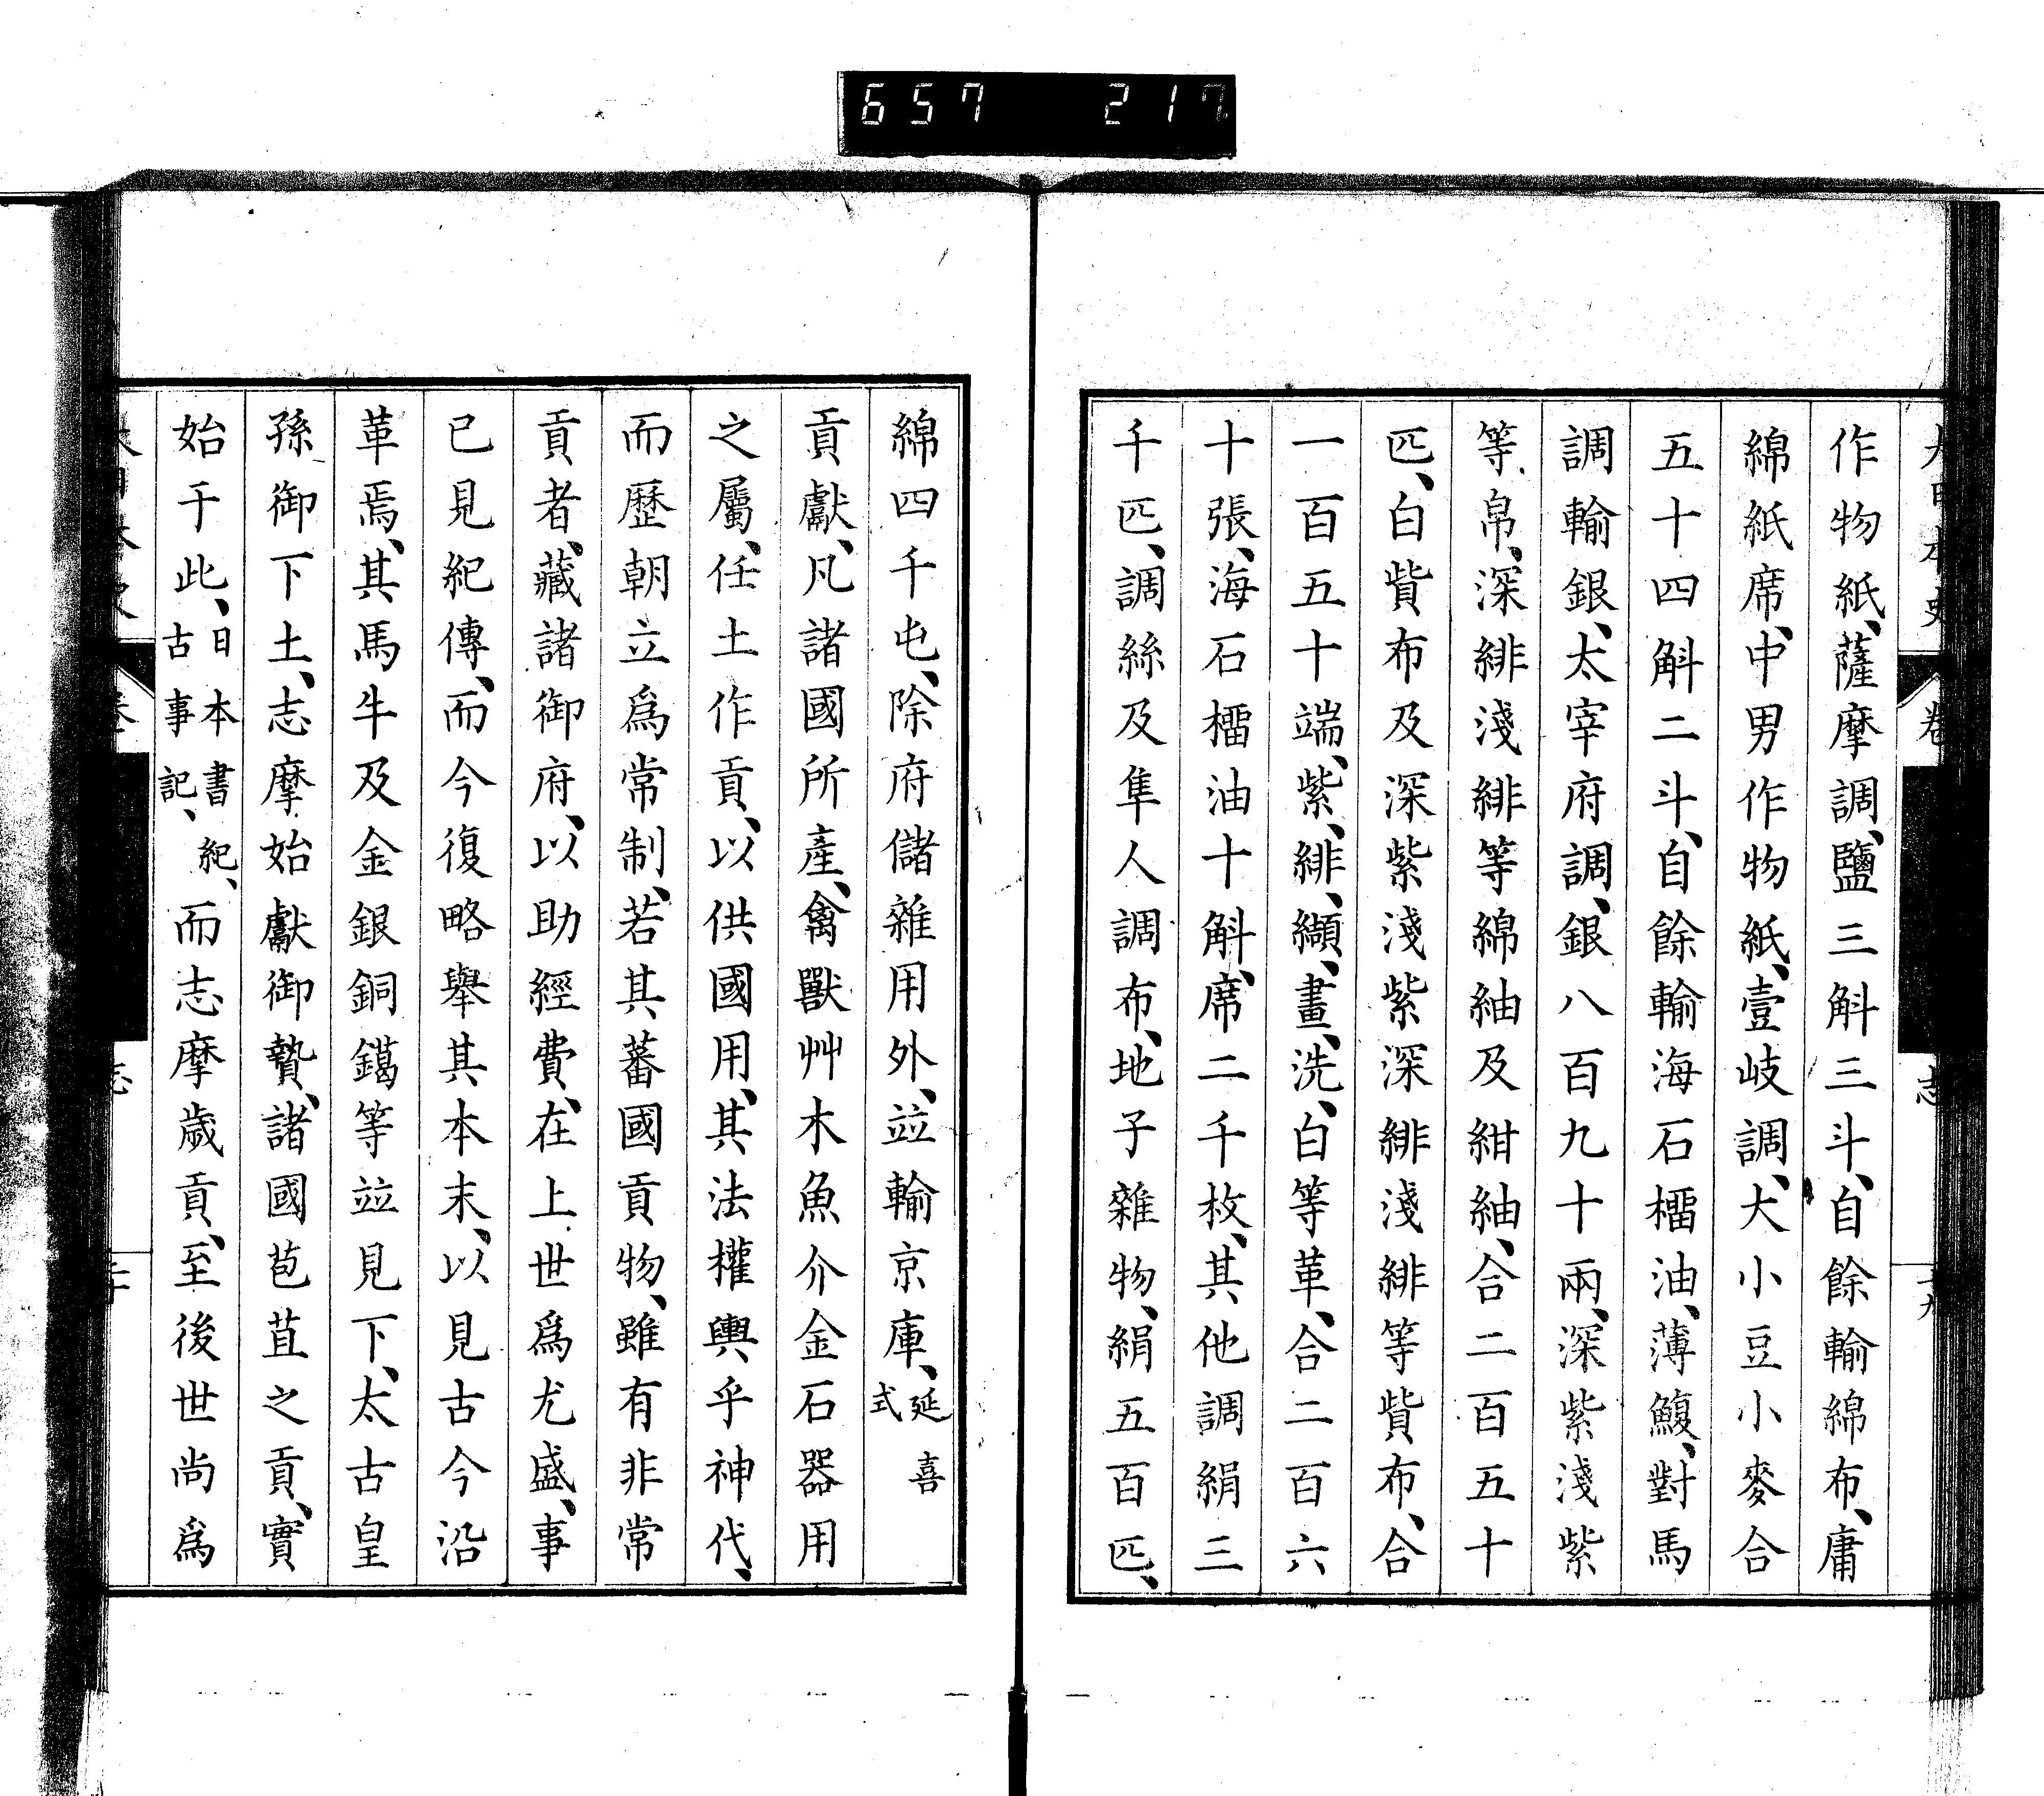 657 217
作物紙、薩摩調、鹽三斛三斗、自餘輸綿布、庸
綿紙席、中男作物紙、壹岐調、大小豆小麥合
五十四斛二斗、自餘輸海石橊油、薄鰒、對馬
調輸銀、太宰府調、銀八百九十兩、深紫淺紫
等帛、深緋淺緋等綿紬及紺紬、合二百五十
匹、白貲布及深紫淺紫深緋淺緋等貲布、合
一百五十端、紫、緋、纈、畫、洗、白等革、合二百六
十張、海石橊油十斛、席二千枚、其他調絹三
千匹、調絲及隼人調布、地子雜物、絹五百匹、
綿四千屯、除府儲雜用外、竝輸京庫、延喜式
貢獻、凡諸國所產、禽獸艸木魚介金石器用
之屬、任土作貢、以供國用、其法權輿乎神代、
而歷朝立爲常制、若其蕃國貢物、雖有非常
貢者、藏諸御府、以助經費、在上世爲尤盛、事
已見紀傳、而今復略舉其本末、以見古今沿
革焉、其馬牛及金銀銅鐵等竝見下、太古皇
孫御下土、志摩始獻御贄、諸國苞苴之貢、實
始于此、日本書紀、古事記、而志摩歲貢、至後世尚爲